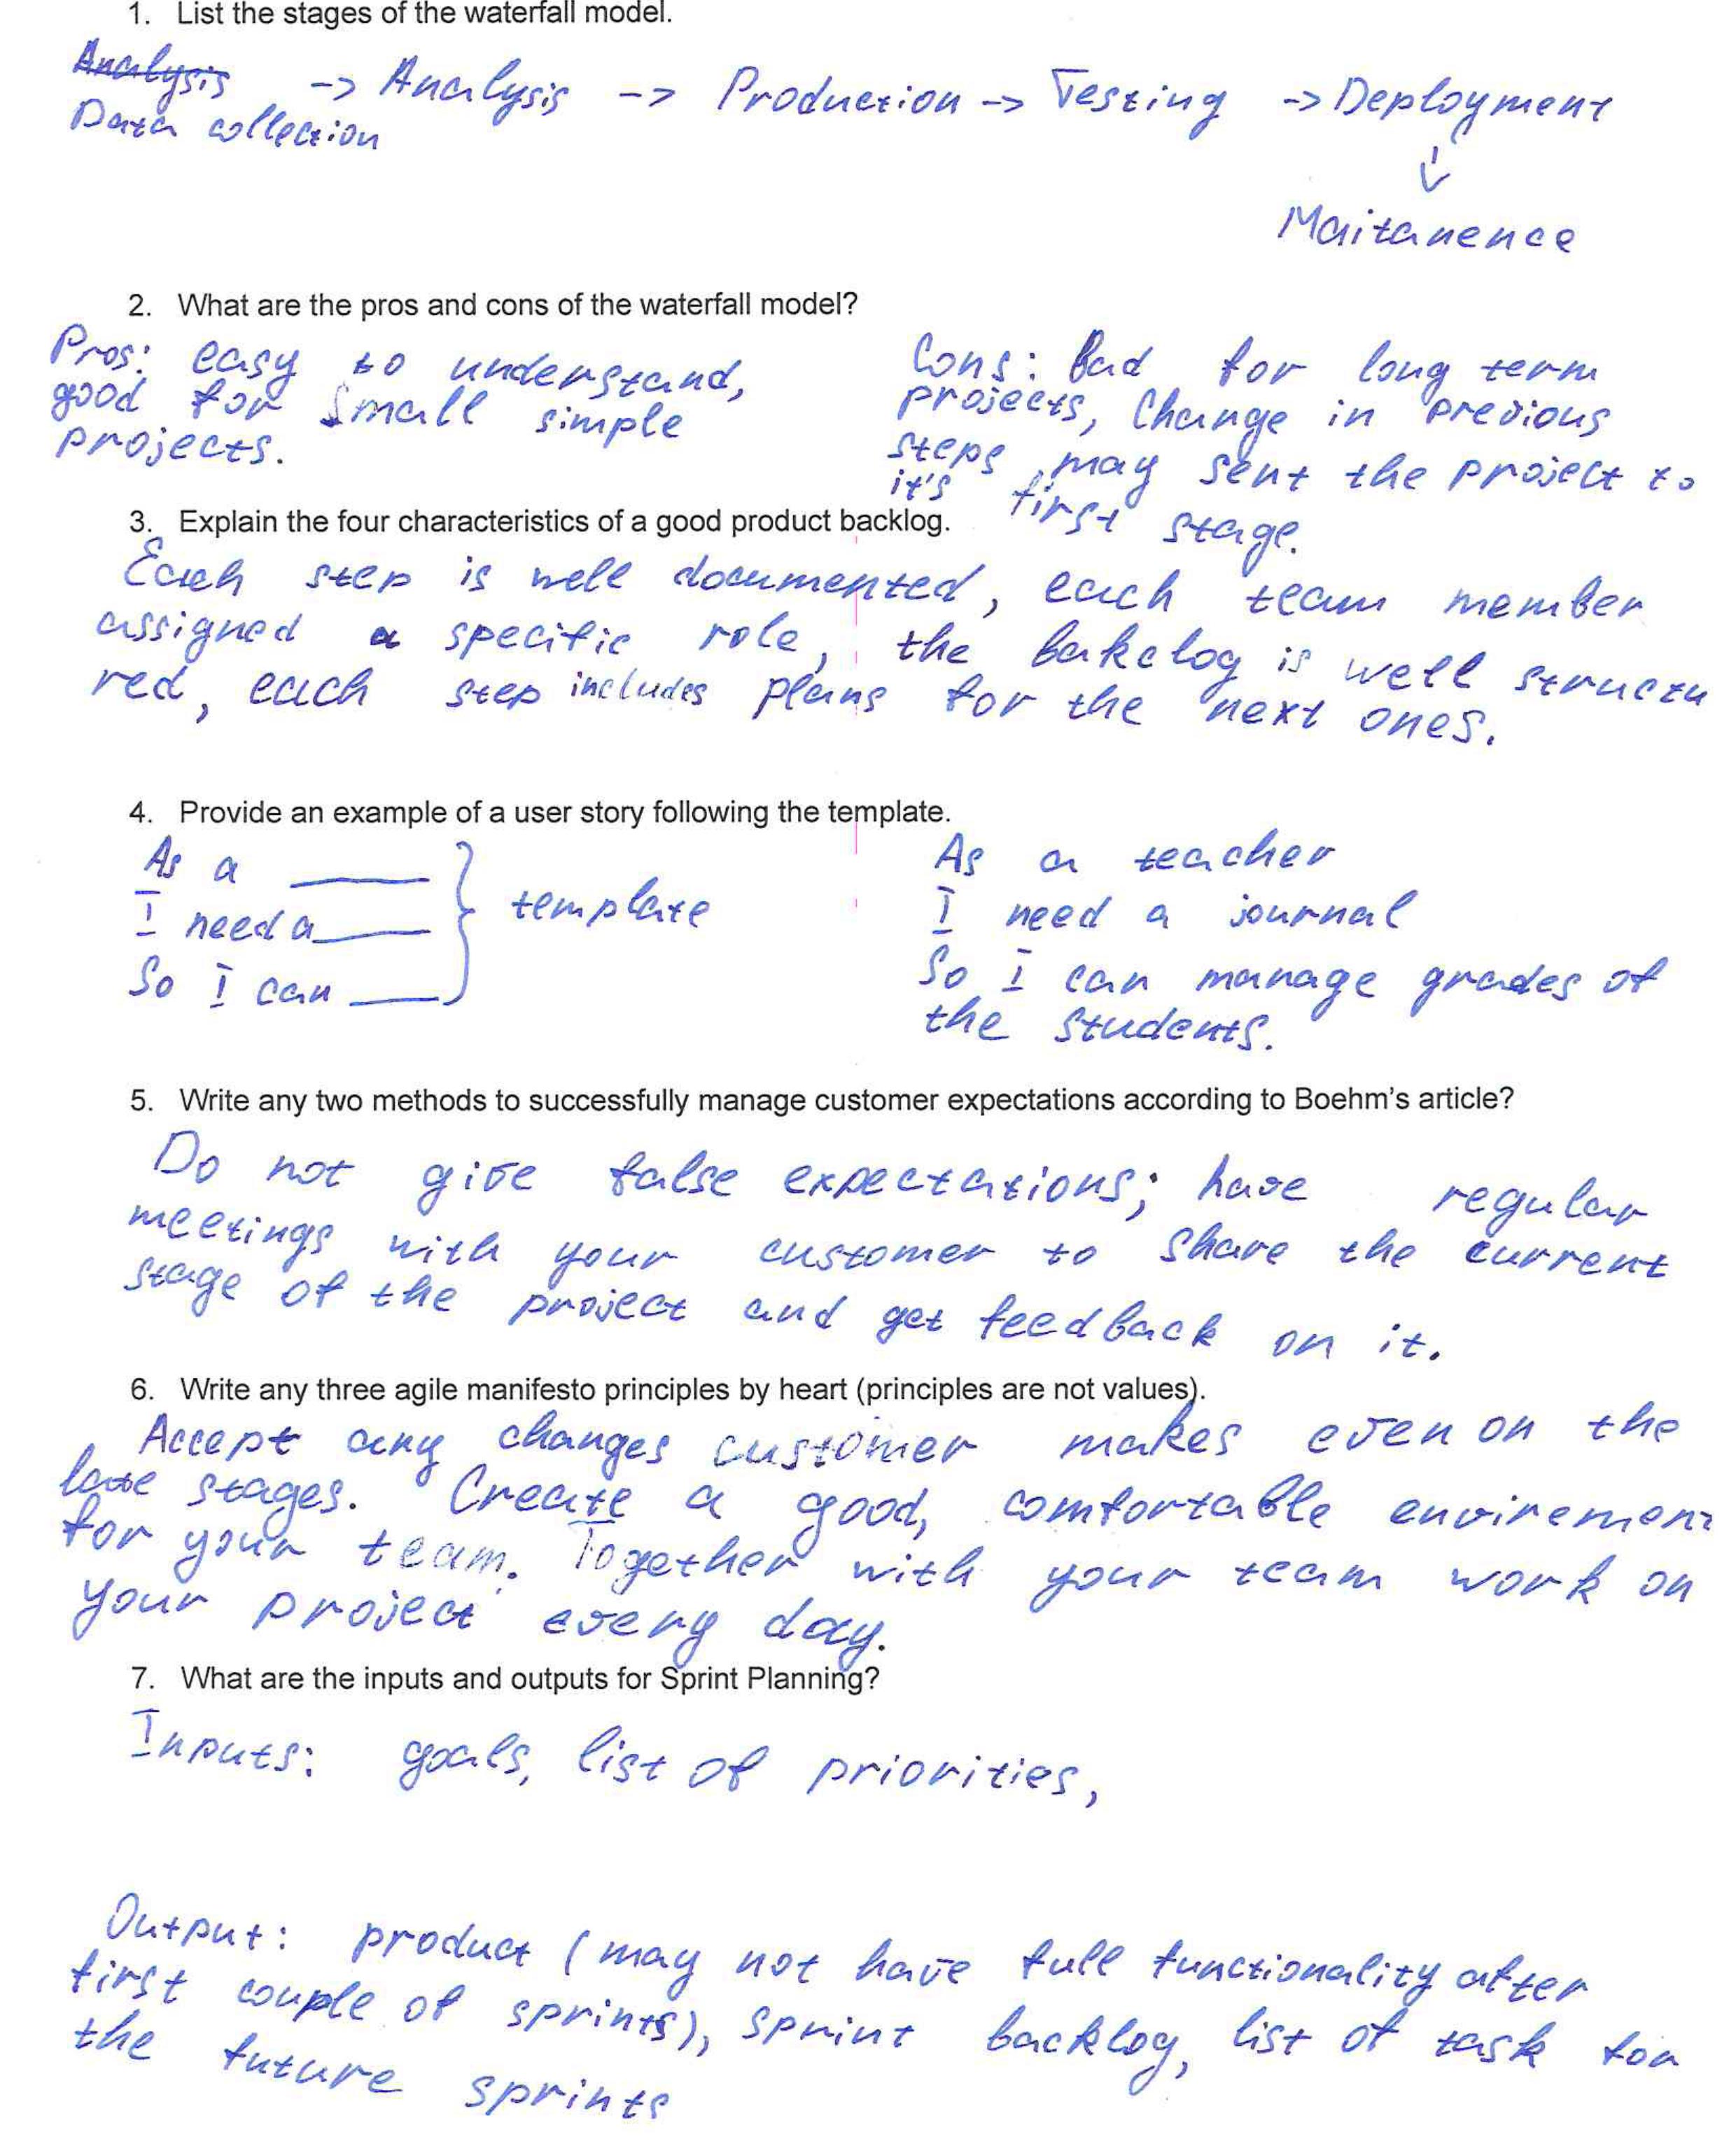 1. List the stages of the waterfall model.
Analysis -> Analysis -> Production -> Testing -> Deployment
Data collection
Maitanence
2. What are the pros and cons of the waterfall model?
Pros: easy to understand,
good for small simple
projects.
Cons: Bad for long term
projects, Change in previous
steps may sent the project to
it's first stage.
3. Explain the four characteristics of a good product backlog.
Each step is well documented, each team member
assigned a specific role, the bakclog is well structu
red, each step includes plans for the next ones.
4. Provide an example of a user story following the template.
As a ____
I need a ____
So I can ____
template
As a teacher
I need a journal
So I can manage grades of
the students.
5. Write any two methods to successfully manage customer expectations according to Boehm's article?
Do not give false expectations; have regular
meetings with your customer to share the current
stage of the project and get feedback on it.
6. Write any three agile manifesto principles by heart (principles are not values).
Accept any changes customer makes even on the
late stages. Create a good, comfortable envirement
for your team. Together with your team work on
your project every day.
7. What are the inputs and outputs for Sprint Planning?
Inputs: goals, list of priorities,
Output: product (may not have full functionality after
first couple of sprints), sprint backlog, list of task for
the future sprints